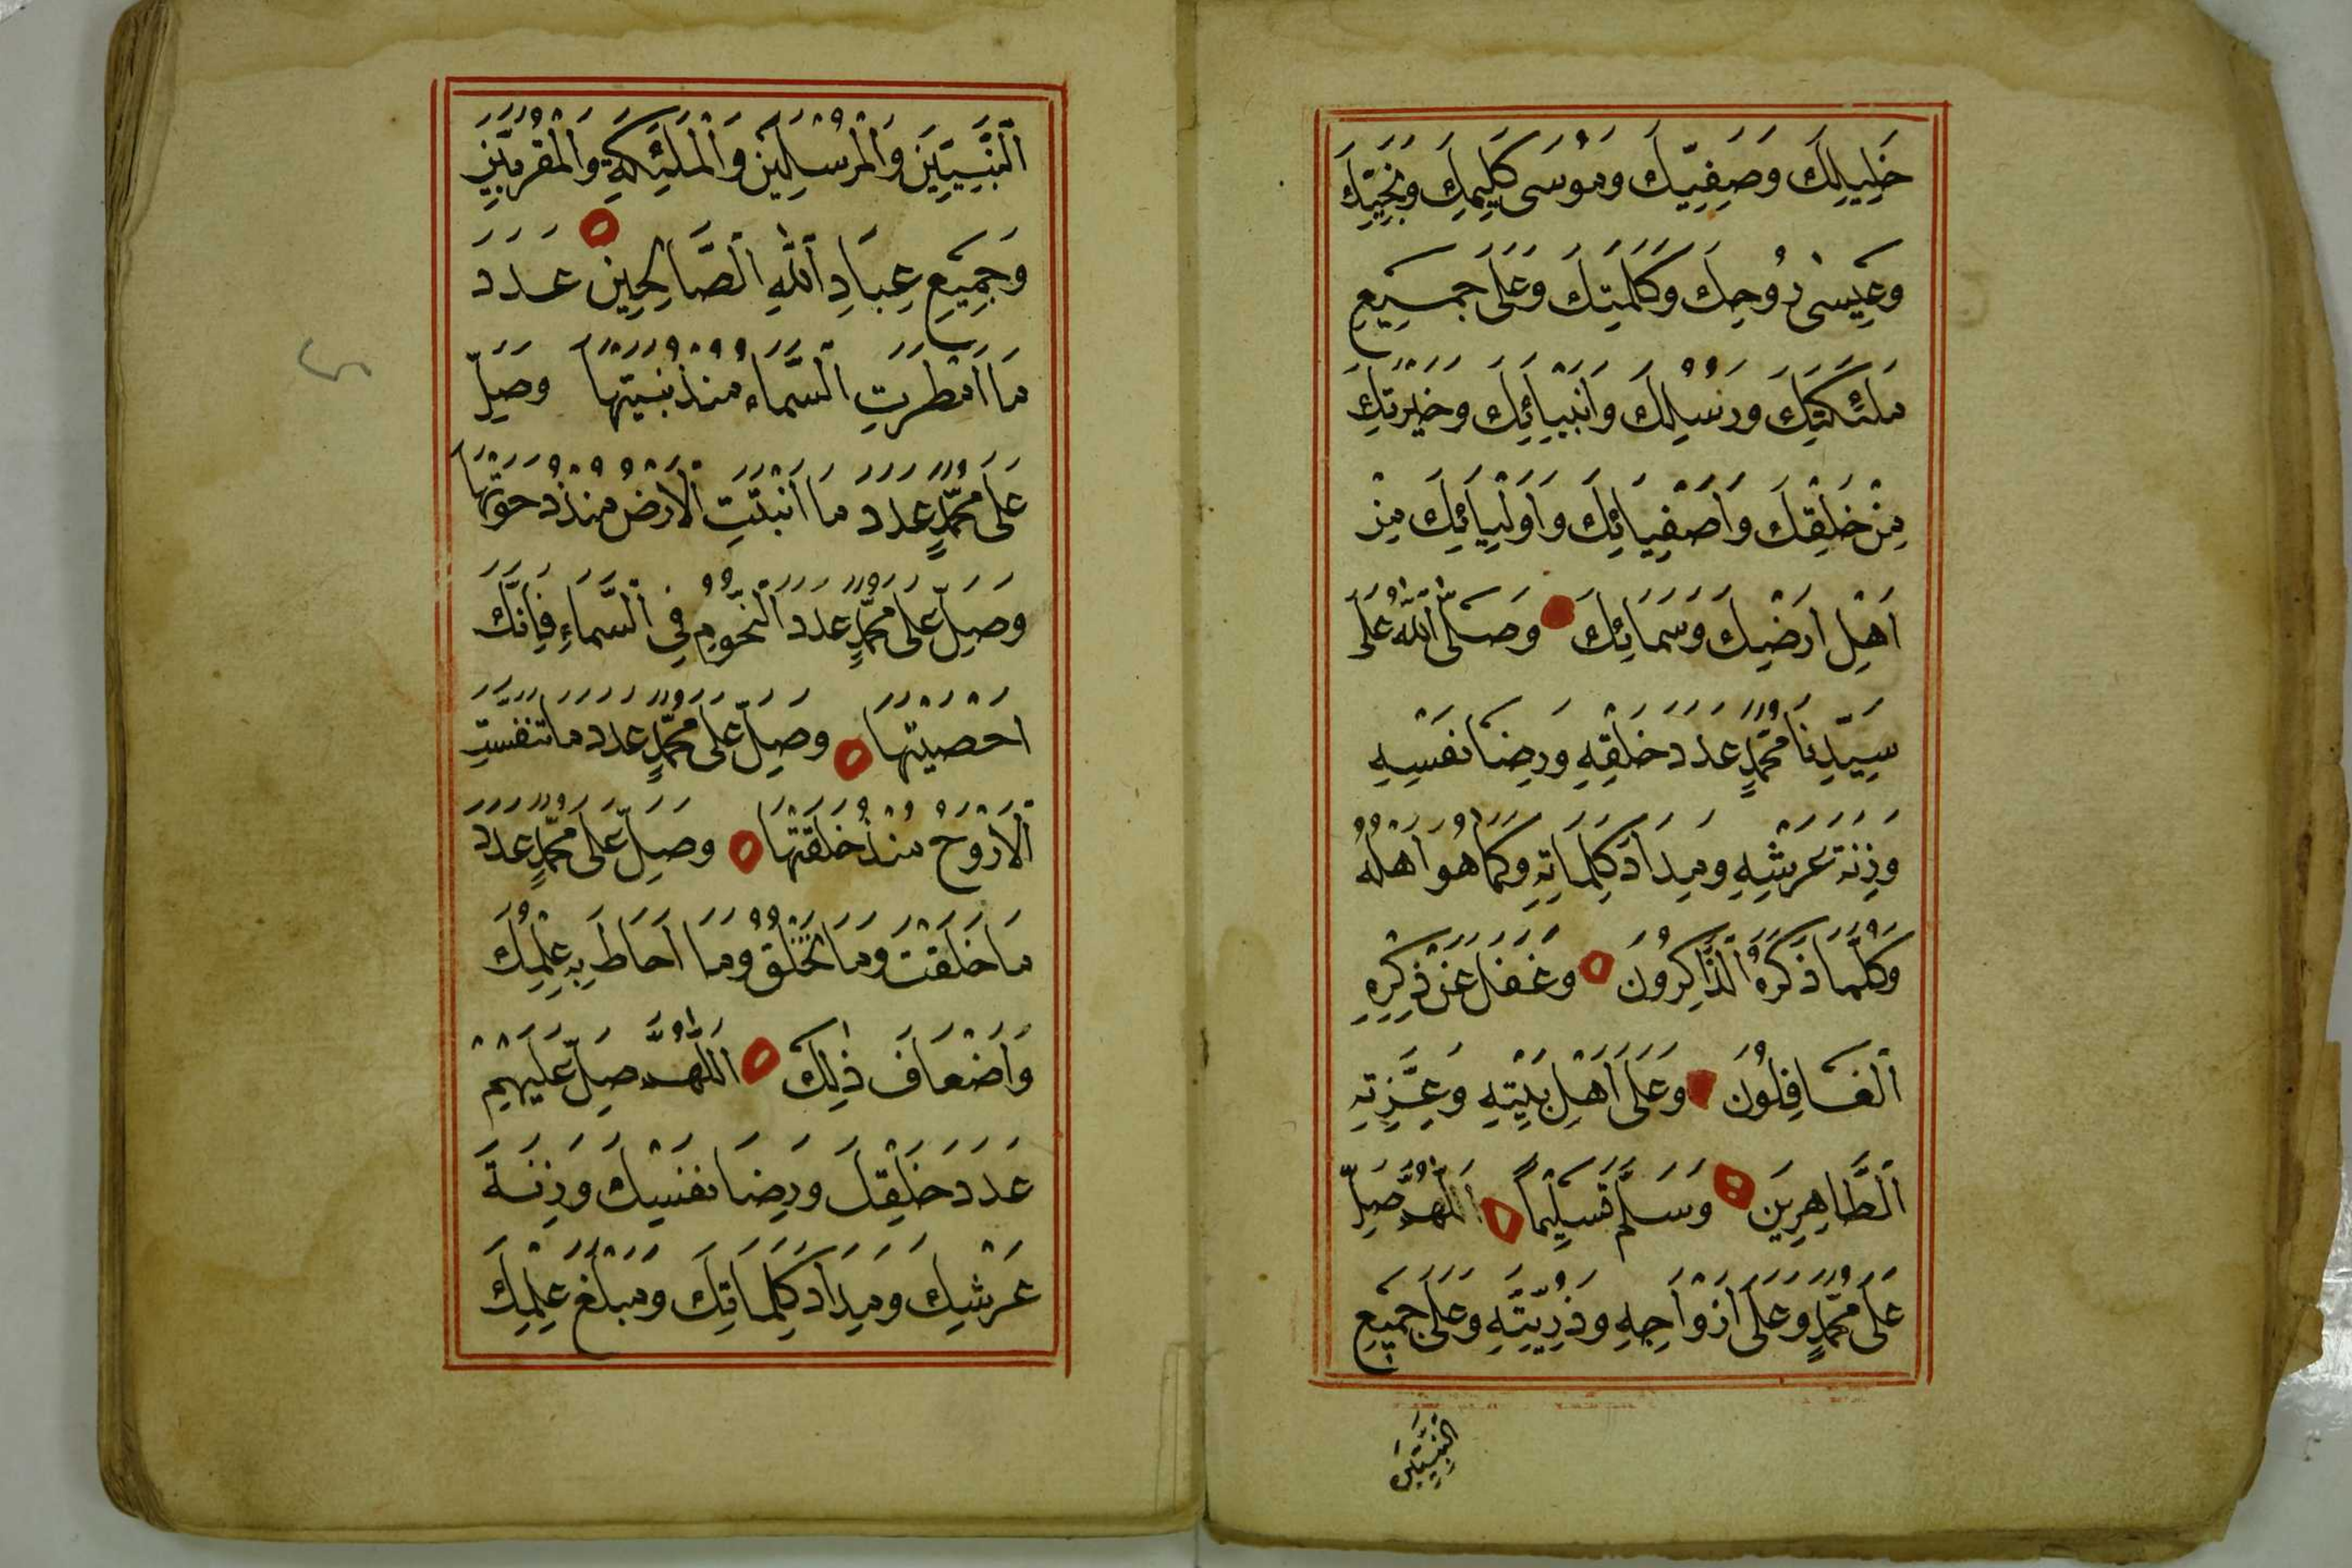 خَلِيلِكَ وَصَفِيِّكَ وَمُوْسَى كَلِيمِكَ وَنَجِيِّكَ
وَعِيسىٰ رُوحِكَ وَكَلِمَتِكَ وَعَلَى جَمِيعِ
مَلٰئِكَتِكَ وَرُسُلِكَ وَاَنْبِيَائِكَ وَخِيْرَتِكَ
مِنْ خَلْقِكَ وَاَصْفِيَائِكَ وَاَوْلِيَائِكَ مِنْ
اَهْلِ اَرْضِكَ وَسَمَائِكَ وَصَلَّى اللّٰهُ عَلَى
سَيِّدِنَا مُحَمَّدٍ عَدَدَ خَلْقِهِ وَرِضَا نَفْسِهِ
وَزِنَةَ عَرْشِهِ وَمِدَادَ كَلِمَاتِهِ وَكَمَا هُوَ اَهْلُهُ
وَكُلَّمَا ذَكَرَهُ الذَّاكِرُونَ وَغَفَلَ عَنْ ذِكْرِهِ
الْغَافِلُونَ وَعَلَى اَهْلِ بَيْتِهِ وَعِتْرَتِهِ
الطَّاهِرِينَ وَسَلَّمَ تَسْلِيْمًا اَللّٰهُمَّ صَلِّ
عَلَى مُحَمَّدٍ وَعَلَى اَزْوَاجِهِ وَذُرِّيَّتِهِ وَعَلَى جَمِيعِ
النَّبِيِّينَ
النَّبِيِّينَ وَالْمُرْسَلِينَ وَالْمَلٰئِكَةِ وَالْمُقَرَّبِينَ
وَجَمِيعِ عِبَادِ اللّٰهِ الصَّالِحِينَ عَدَدَ
مَا اَمْطَرَتِ السَّمَاءُ مُنْذُ بَنَيْتَهَا وَصَلِّ
عَلَى مُحَمَّدٍ عَدَدَ مَا اَنْبَتَتِ الْاَرْضُ مُنْذُ دَحَوْتَهَا
وَصَلِّ عَلَى مُحَمَّدٍ عَدَدَ النُّجُومِ فِي السَّمَاءِ فَاِنَّكَ
اَحْصَيْتَهَا وَصَلِّ عَلَى مُحَمَّدٍ عَدَدَ مَا تَنَفَّسَتِ
الْاَرْوَحُ مُنْذُ خَلَقْتَهَا وَصَلِّ عَلَى مُحَمَّدٍ عَدَدَ
مَا خَلَقْتَ وَمَا تَخْلُقُ وَمَا اَحَاطَ بِهِ عِلْمُكَ
وَاَضْعَافَ ذٰلِكَ اَللّٰهُمَّ صَلِّ عَلَيْهِمْ
عَدَدَ خَلْقِكَ وَرِضَا نَفْسِكَ وَزِنَةَ
عَرْشِكَ وَمِدَادَ كَلِمَاتِكَ وَمَبْلَغَ عِلْمِكَ